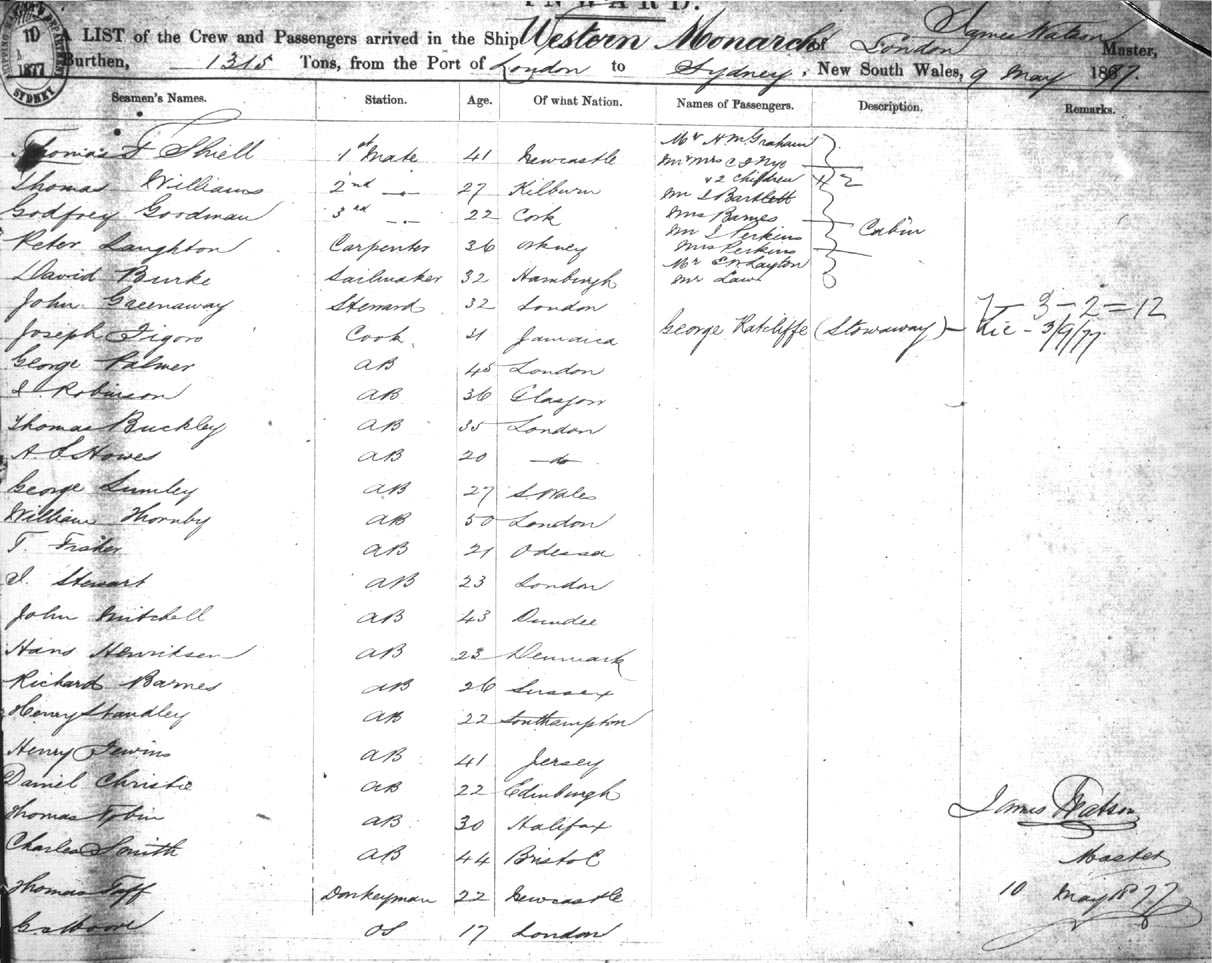 INWARD.
A LIST of the Crew and Passengers arrived in the Ship Western Monarch of London James Watson Master,
Burthen, 1315 Tons, from the Port of London to Sydney, New South Wales, 9 May 1877.
Seamen's Names. Station. Age. Of what Nation. Names of Passengers. Description. Remarks.
10
1877
SYDNEY
Thomas F Shiell 1st Mate 41 Newcastle Mr H M Graham
Mr & Mrs Nye
Thomas Williams 2nd —.— 27 Kilburn & 2 Children
Mr Bartlett
Godfrey Goodman 3rd —.— 22 Cork Mrs Barnes Cabin
Mr Perkins
Peter Laughton Carpenter 36 Orkney Mrs Perkins
Mr Layton
David Burke Sailmaker 32 Hamburgh Mr Law
John Greenaway Steward 32 London 7 – 3 – 2 = 12
Joseph Figoro Cook 41 Jamaica George Ratcliffe (Stowaway) – 3/9/77
George Palmer AB 45 London
Robinson AB 36 Glasgow
Thomas Buckley AB 35 London
A. Howes AB 20 —do—
George Lumley AB 27 S Wales
William Thornby AB 50 London
T. Fisher AB 21 Odessa
Stewart AB 23 London
John Mitchell AB 43 Dundee
Hans Henriksen AB 23 Denmark
Richard Barnes AB 26 Sussex
Henry Standley AB 22 Southampton
Henry Jewins AB 41 Jersey
Daniel Christie AB 22 Edinburgh
Thomas Tobin AB 30 Halifax James Watson
Charles Smith AB 44 Bristol Master
Thomas Taff Donkeyman 22 Newcastle 10 May 1877
Moore OS 17 London